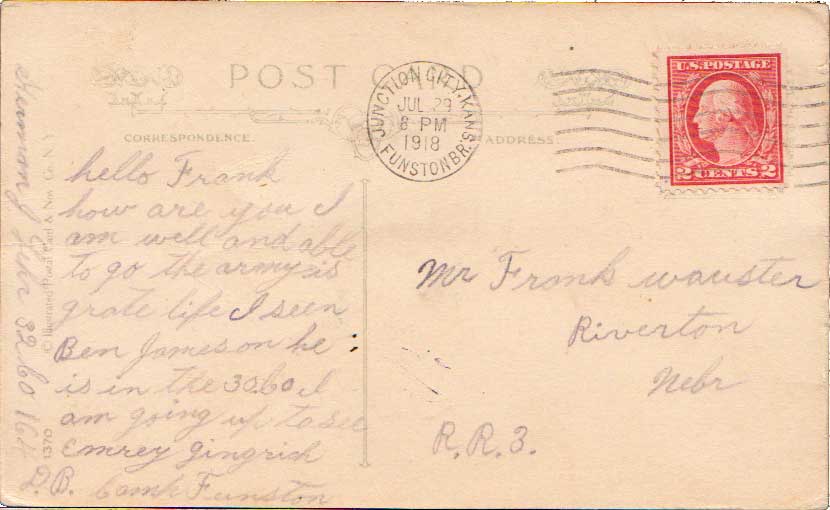 POST CARD
CORRESPONDENCE.
ADDRESS.
JUNCTION CITY, KANS.
JUL 29
8 PM
1918
FUNSTON BR.
U.S. POSTAGE
2 CENTS 2
hello Frank
how are you I
am well and able
to go the army is
grate life I seen
Ben Jameson he
is in the 30.60 I
am going up to see
Emrey Gingrich
Camp Funston
Herman
32.60 164
D.B.
Mr Frank wauster
Riverton
Nebr
R.R.3.
© Illustrated Postal Card & Nov. Co. N.Y.
1370